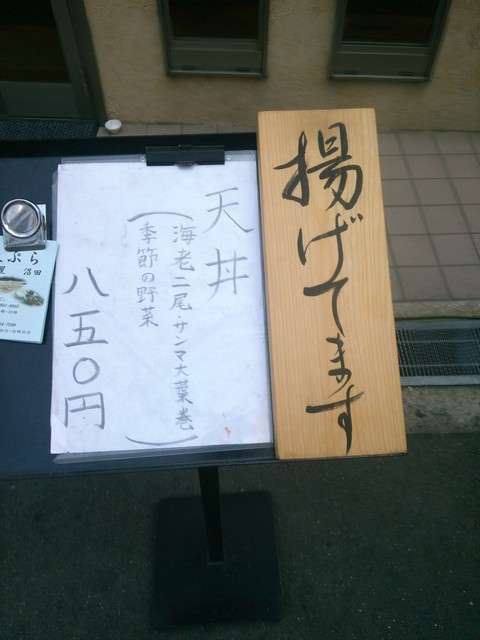 揚げてます
天丼
（海老二尾・サンマ大葉巻
季節の野菜）
八五〇円
ぷら
沼田